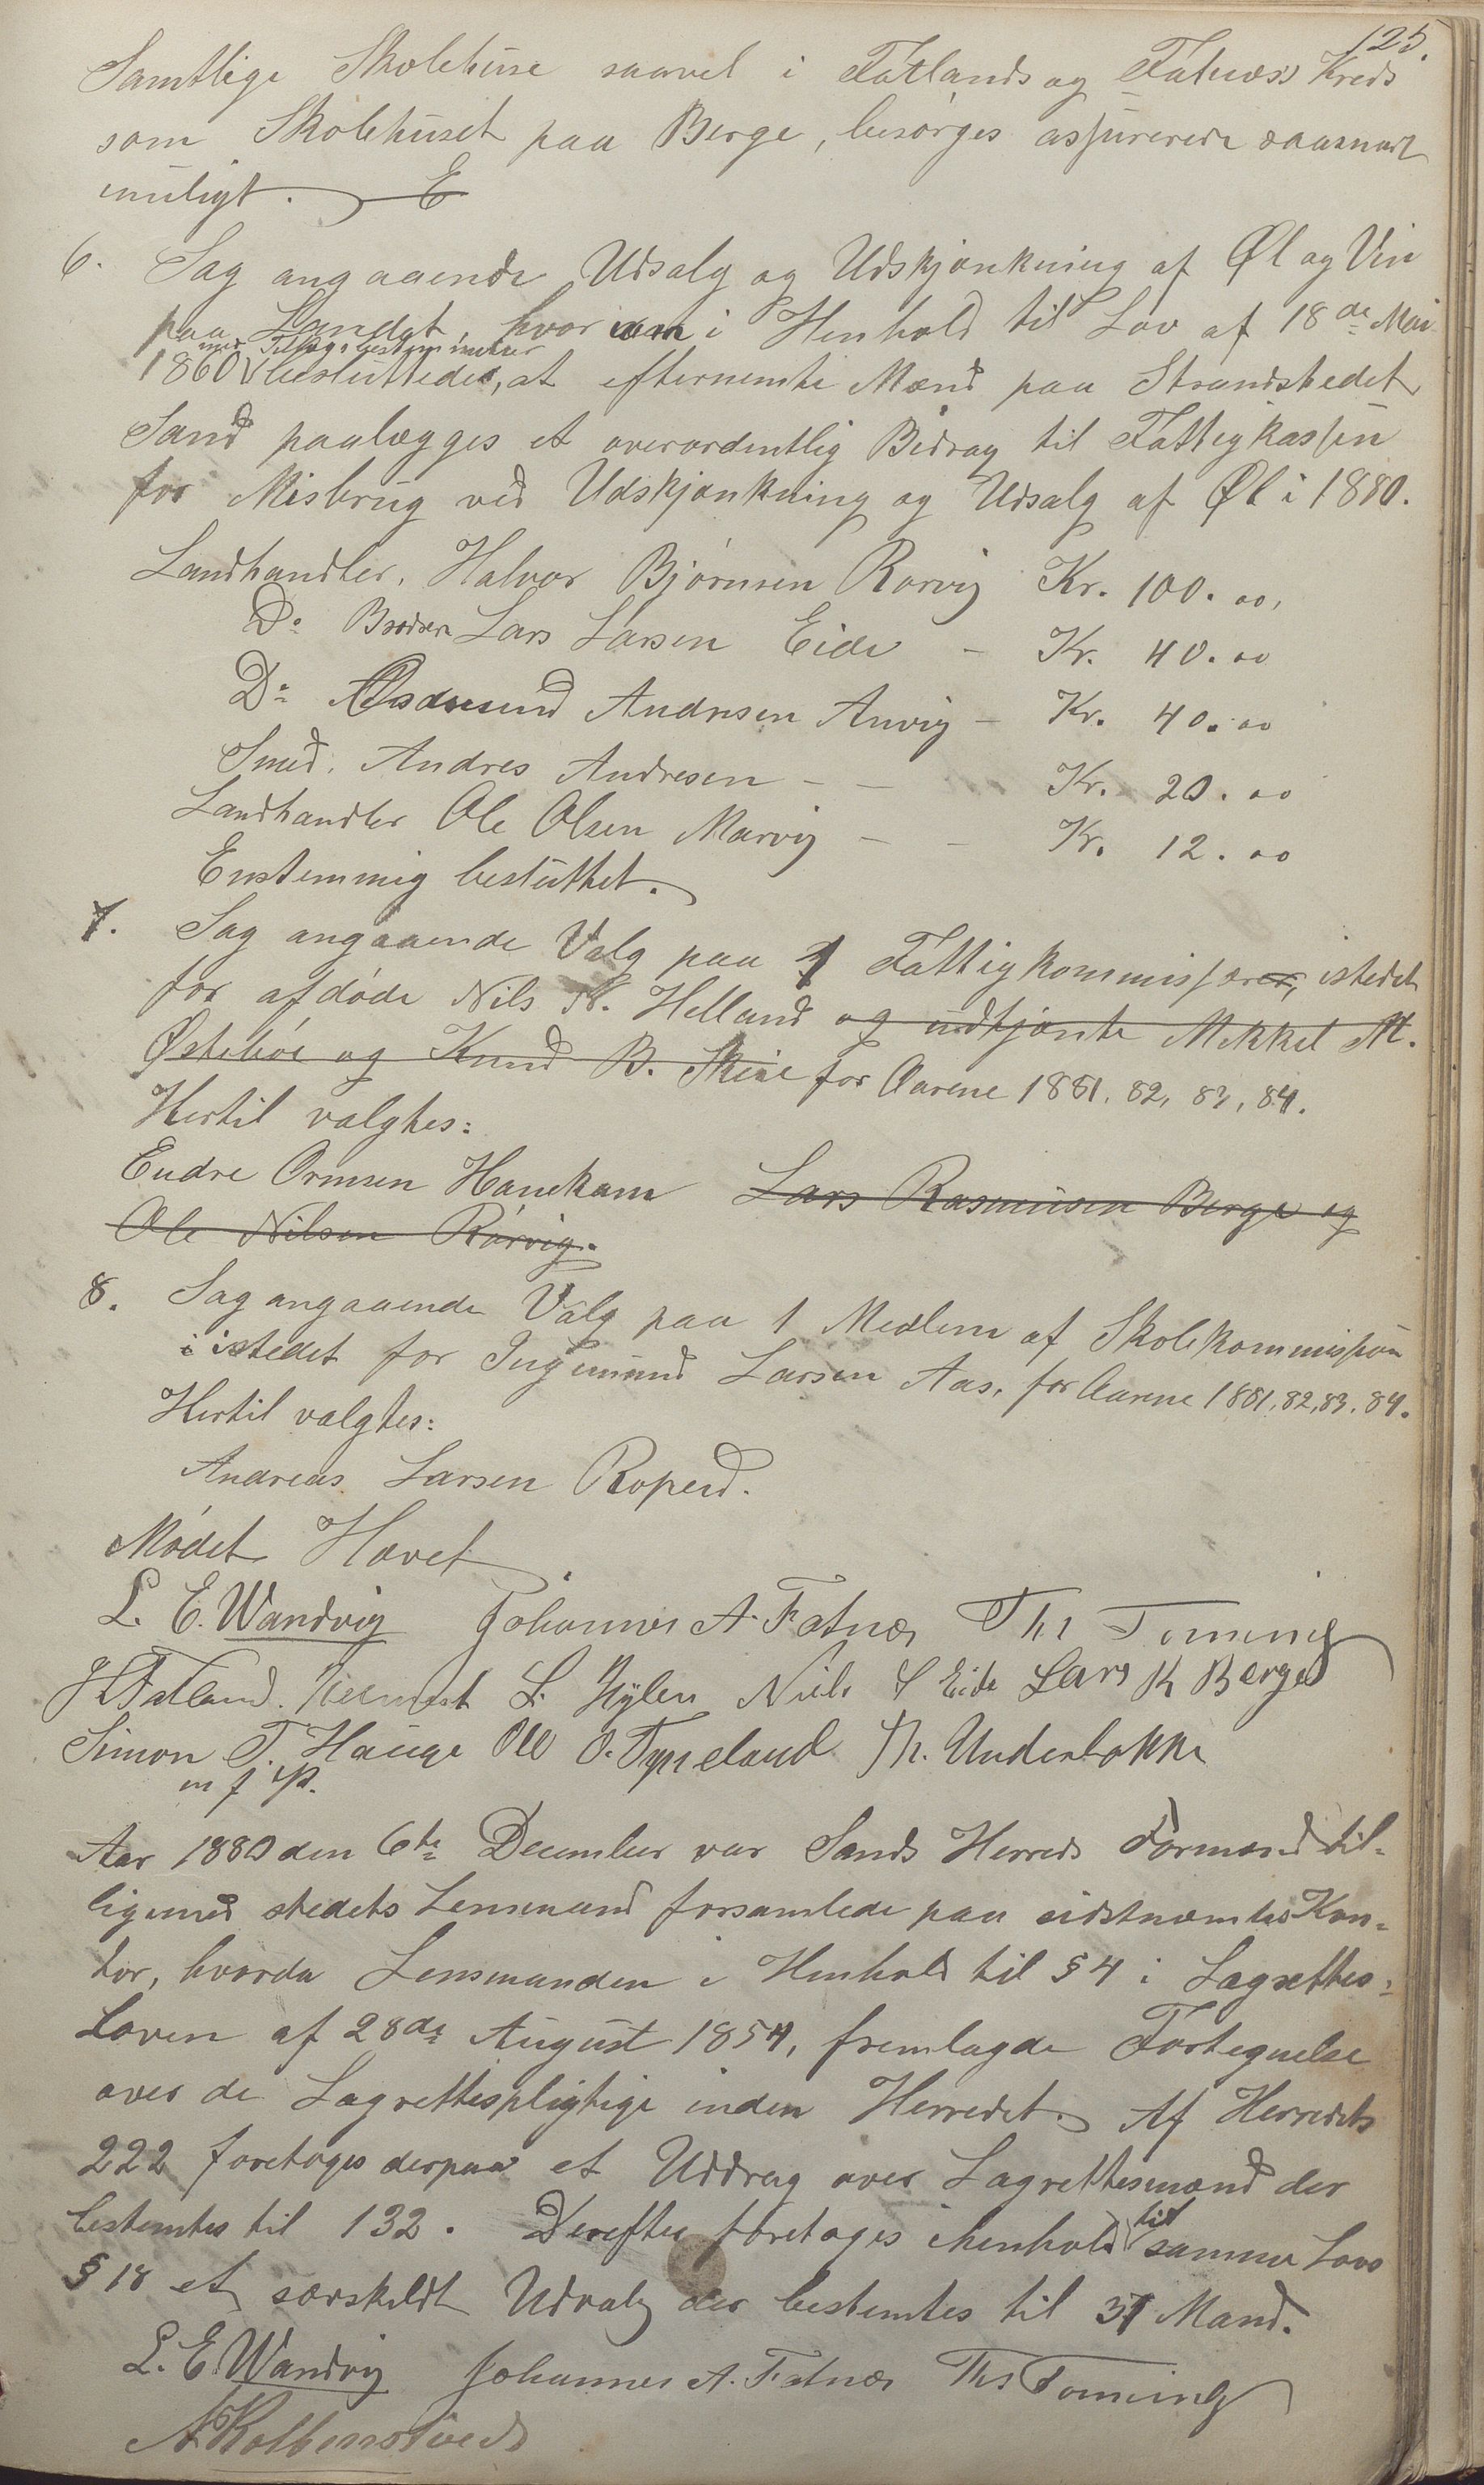 125.
Samtlige Skolehuse saavel i Fatlands og Fatnæs Kreds
som Skolehuset paa Berge, besørges assurerede saasnart
muligt.
6. Sag angaaende Udsalg og Udskjænkning af Øl og Vin
paa Landet, hvorom i Henhold til Lov af 18de Mai
med Tillægsbestemmelser
1860 besluttedes, at efternemte Mænd paa Strandstedet
Sand paalægges et overordentlig Bidrag til Fattigkassen
for Misbrug ved Udskjænkning og Udsalg af Øl i 1880.
Landhandler, Halvor Bjørnsen Rørvig Kr. 100.00,
Do Lars Larsen Eide - Kr. 40.00
Do Andresen Anvig - Kr. 40.00
Smed. Andres Andresen - - Kr. 20.00
Landhandler Ole Olsen Marvig - - Kr. 12.00
Enstemmig besluttet.
7. Sag angaaende Valg paa 1 Fattigkommissærer, istedet
for afdøde Nils N. Helland og udtjente Mikkel M.
Østebøe og Knud B. Skeie for Aarene 1881, 82, 83, 84.
Hertil valgtes:
Endre Ormsen Hanekam Lars Rasmusen Berge og
Ole Nilsen Rørvig.
8. Sag angaaende Valg paa 1 Medlem af Skolekommissjon
i istedet for Ingemund Larsen Aas, for Aarene 1881, 82, 83, 84.
Hertil valgtes:
Andreas Larsen Ropeid.
Mødet Hævet
L. E. Wandvig Johannes A. Fatnæs Ths Tonning
H Fatland. L. Hylen Niels S Eide Lars K Berge
Simon T. Hauge Ole O. Tysseland Th. Underbakke
m f P.
Aar 1880 den 6te December var Sands Herreds Formænd til-
ligemed stedets Lensmand forsamlede paa sidstnæmtes Kon-
tor, hvorda Lensmanden i Henhold til § 4 i Lagrettes-
Loven af 28de August 1854, fremlagde Fortegnelse
over de Lagrettespligtige inden Herredet. Af Herredets
222 foretoges derpaa et Uddrag over Lagrettesmænd der
bestemtes til 132. Derefter foretoges ihenhold til samme Lovs
§ 18 et særskildt Udvalg der bestemtes til 37 Mand.
L. E. Wandvig Johannes A. Fatnæs Ths Tonning
A Kolbenstvedt